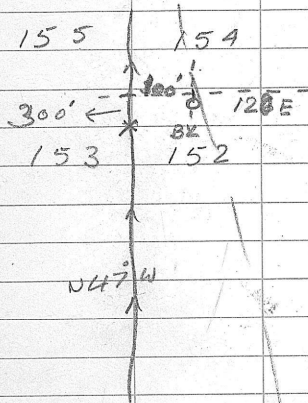 155 154
100'
300' ← 128E
BK
153 152
N47°W